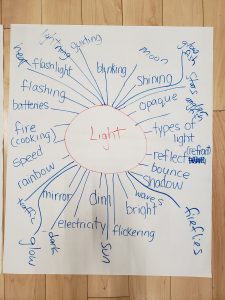 Light
guiding
blinking
moon
shining
opaque
types of
light
reflect
bounce
shadow
fireflies
waves
bright
flickering
sun
dim
electricity
dark
mirror
glow
traffic
rainbow
speed
fire
(cooking)
batteries
flashing
flashlight
heat